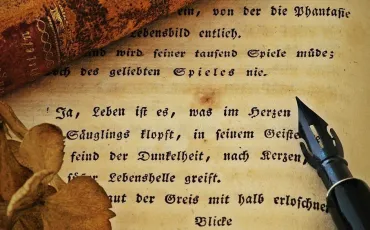 ein, von der die Phantasie
Lebensbild entlich.
und wird seiner tausend Spiele müde;
des geliebten Spieles nie.
Ja, Leben ist es, was im Herzen
Säuglings klopft, in seinem Geiste
feind der Dunkelheit, nach Kerzen,
Lebenshelle greift.
der Greis mit halb erloschne
Blicke